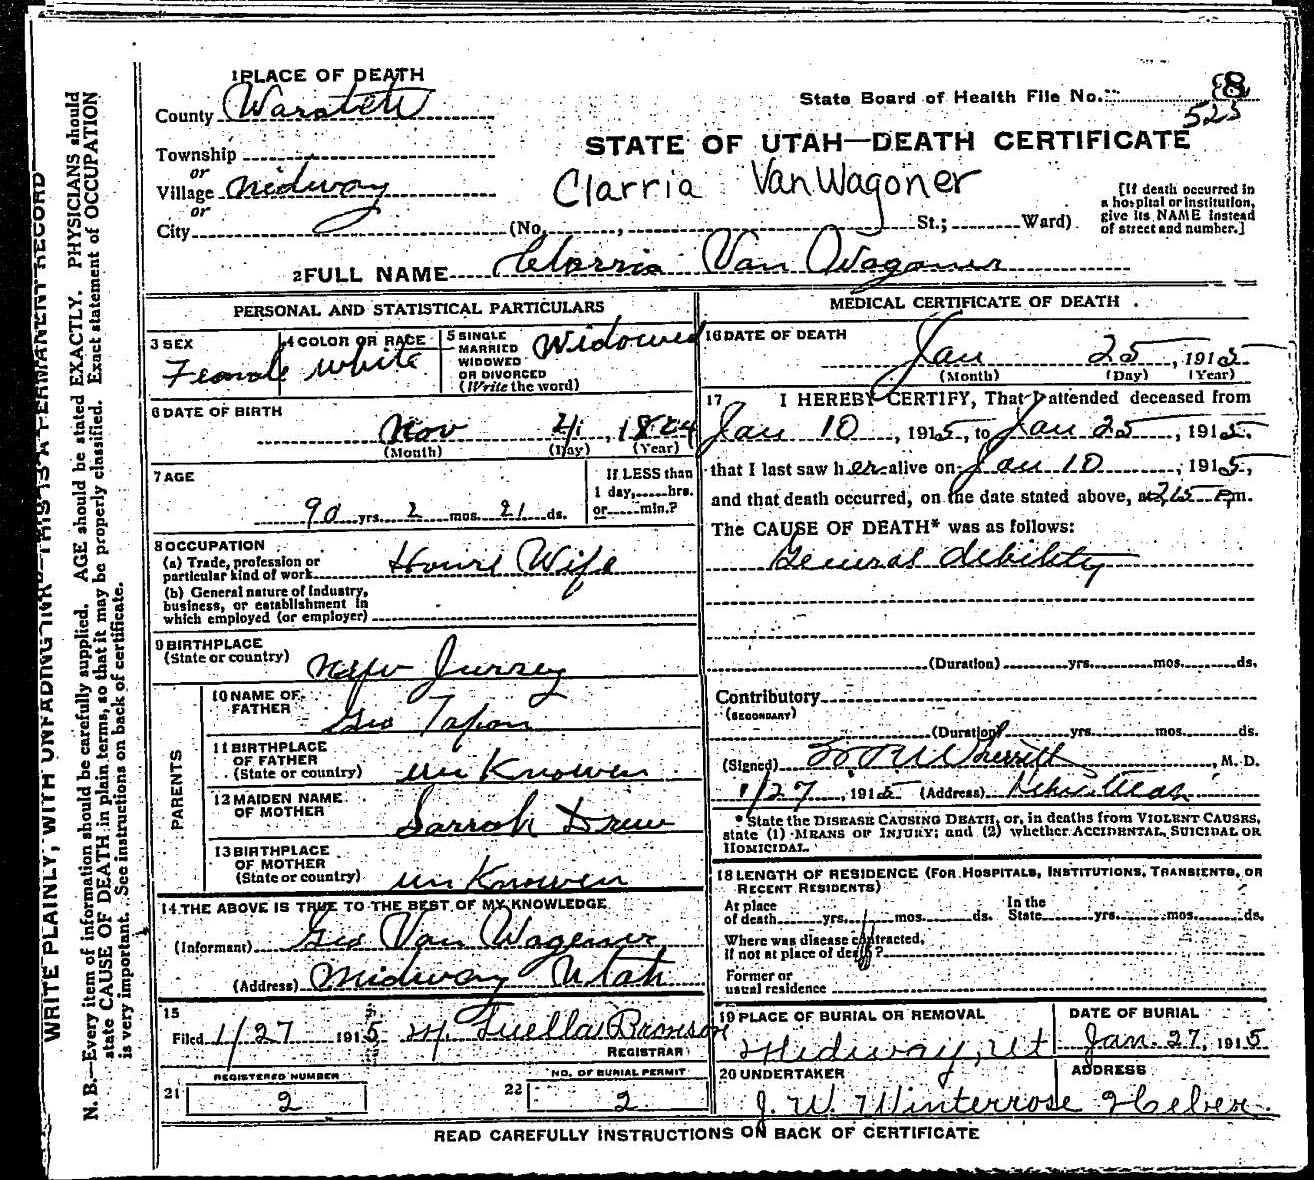 1 PLACE OF DEATH
County Wasatch
State Board of Health File No. 8
525
Township
STATE OF UTAH—DEATH CERTIFICATE
or
Village Midway
Clarria VanWagoner
[If death occurred in
a hospital or institution,
give its NAME instead
of street and number.]
or
City (No. , St.; Ward)
2 FULL NAME Clarria Van Wagoner
PERSONAL AND STATISTICAL PARTICULARS
3 SEX
Female
4 COLOR OR RACE
White
5 SINGLE
MARRIED
WIDOWED
OR DIVORCED
(Write the word)
Widowed
6 DATE OF BIRTH
Nov 4, 1824
(Month) (Day) (Year)
7 AGE
90 yrs. 2 mos. 21 ds.
If LESS than
1 day, hrs.
or min.?
8 OCCUPATION
(a) Trade, profession or
particular kind of work House Wife
(b) General nature of Industry,
business, or establishment in
which employed (or employer)
9 BIRTHPLACE
(State or country) New Jursey
PARENTS
10 NAME OF
FATHER
Geo Tapon
11 BIRTHPLACE
OF FATHER
(State or country) un Knowen
12 MAIDEN NAME
OF MOTHER
Sarroh Drew
13 BIRTHPLACE
OF MOTHER
(State or country) un Knowen
14 THE ABOVE IS TRUE TO THE BEST OF MY KNOWLEDGE
(Informant) Geo Van Wagoner
(Address) Midway Utah
15
Filed 1/27 1915 M. Luella Bronson
REGISTRAR
REGISTERED NUMBER
21 2
NO. OF BURIAL PERMIT
22 2
MEDICAL CERTIFICATE OF DEATH
16 DATE OF DEATH
Jan 25, 1915
(Month) (Day) (Year)
17 I HEREBY CERTIFY, That I attended deceased from
Jan 10, 1915, to Jan 25, 1915.
that I last saw her alive on Jan 10, 1915,
and that death occurred, on the date stated above, at 215 P.m.
The CAUSE OF DEATH* was as follows:
General debility
(Duration) yrs. mos. ds.
Contributory
(SECONDARY)
(Duration) yrs. mos. ds.
(Signed) Wherritt, M. D.
1/27, 1915 (Address) Heber Utah
* State the DISEASE CAUSING DEATH, or, in deaths from VIOLENT CAUSES,
state (1) MEANS OF INJURY; and (2) whether ACCIDENTAL, SUICIDAL OR
HOMICIDAL.
18 LENGTH OF RESIDENCE (FOR HOSPITALS, INSTITUTIONS, TRANSIENTS, OR
RECENT RESIDENTS)
At place
of death yrs. mos. ds.
In the
State yrs. mos. ds.
Where was disease contracted,
if not at place of death?
Former or
usual residence
19 PLACE OF BURIAL OR REMOVAL
Midway, Ut
DATE OF BURIAL
Jan. 27, 1915
20 UNDERTAKER
J. W. Winterrose
ADDRESS
Heber
READ CAREFULLY INSTRUCTIONS ON BACK OF CERTIFICATE
WRITE PLAINLY, WITH UNFADING INK—THIS IS A PERMANENT RECORD
N. B.—Every item of information should be carefully supplied. AGE should be stated EXACTLY. PHYSICIANS should
state CAUSE OF DEATH in plain terms, so that it may be properly classified. Exact statement of OCCUPATION
is very important. See instructions on back of certificate.